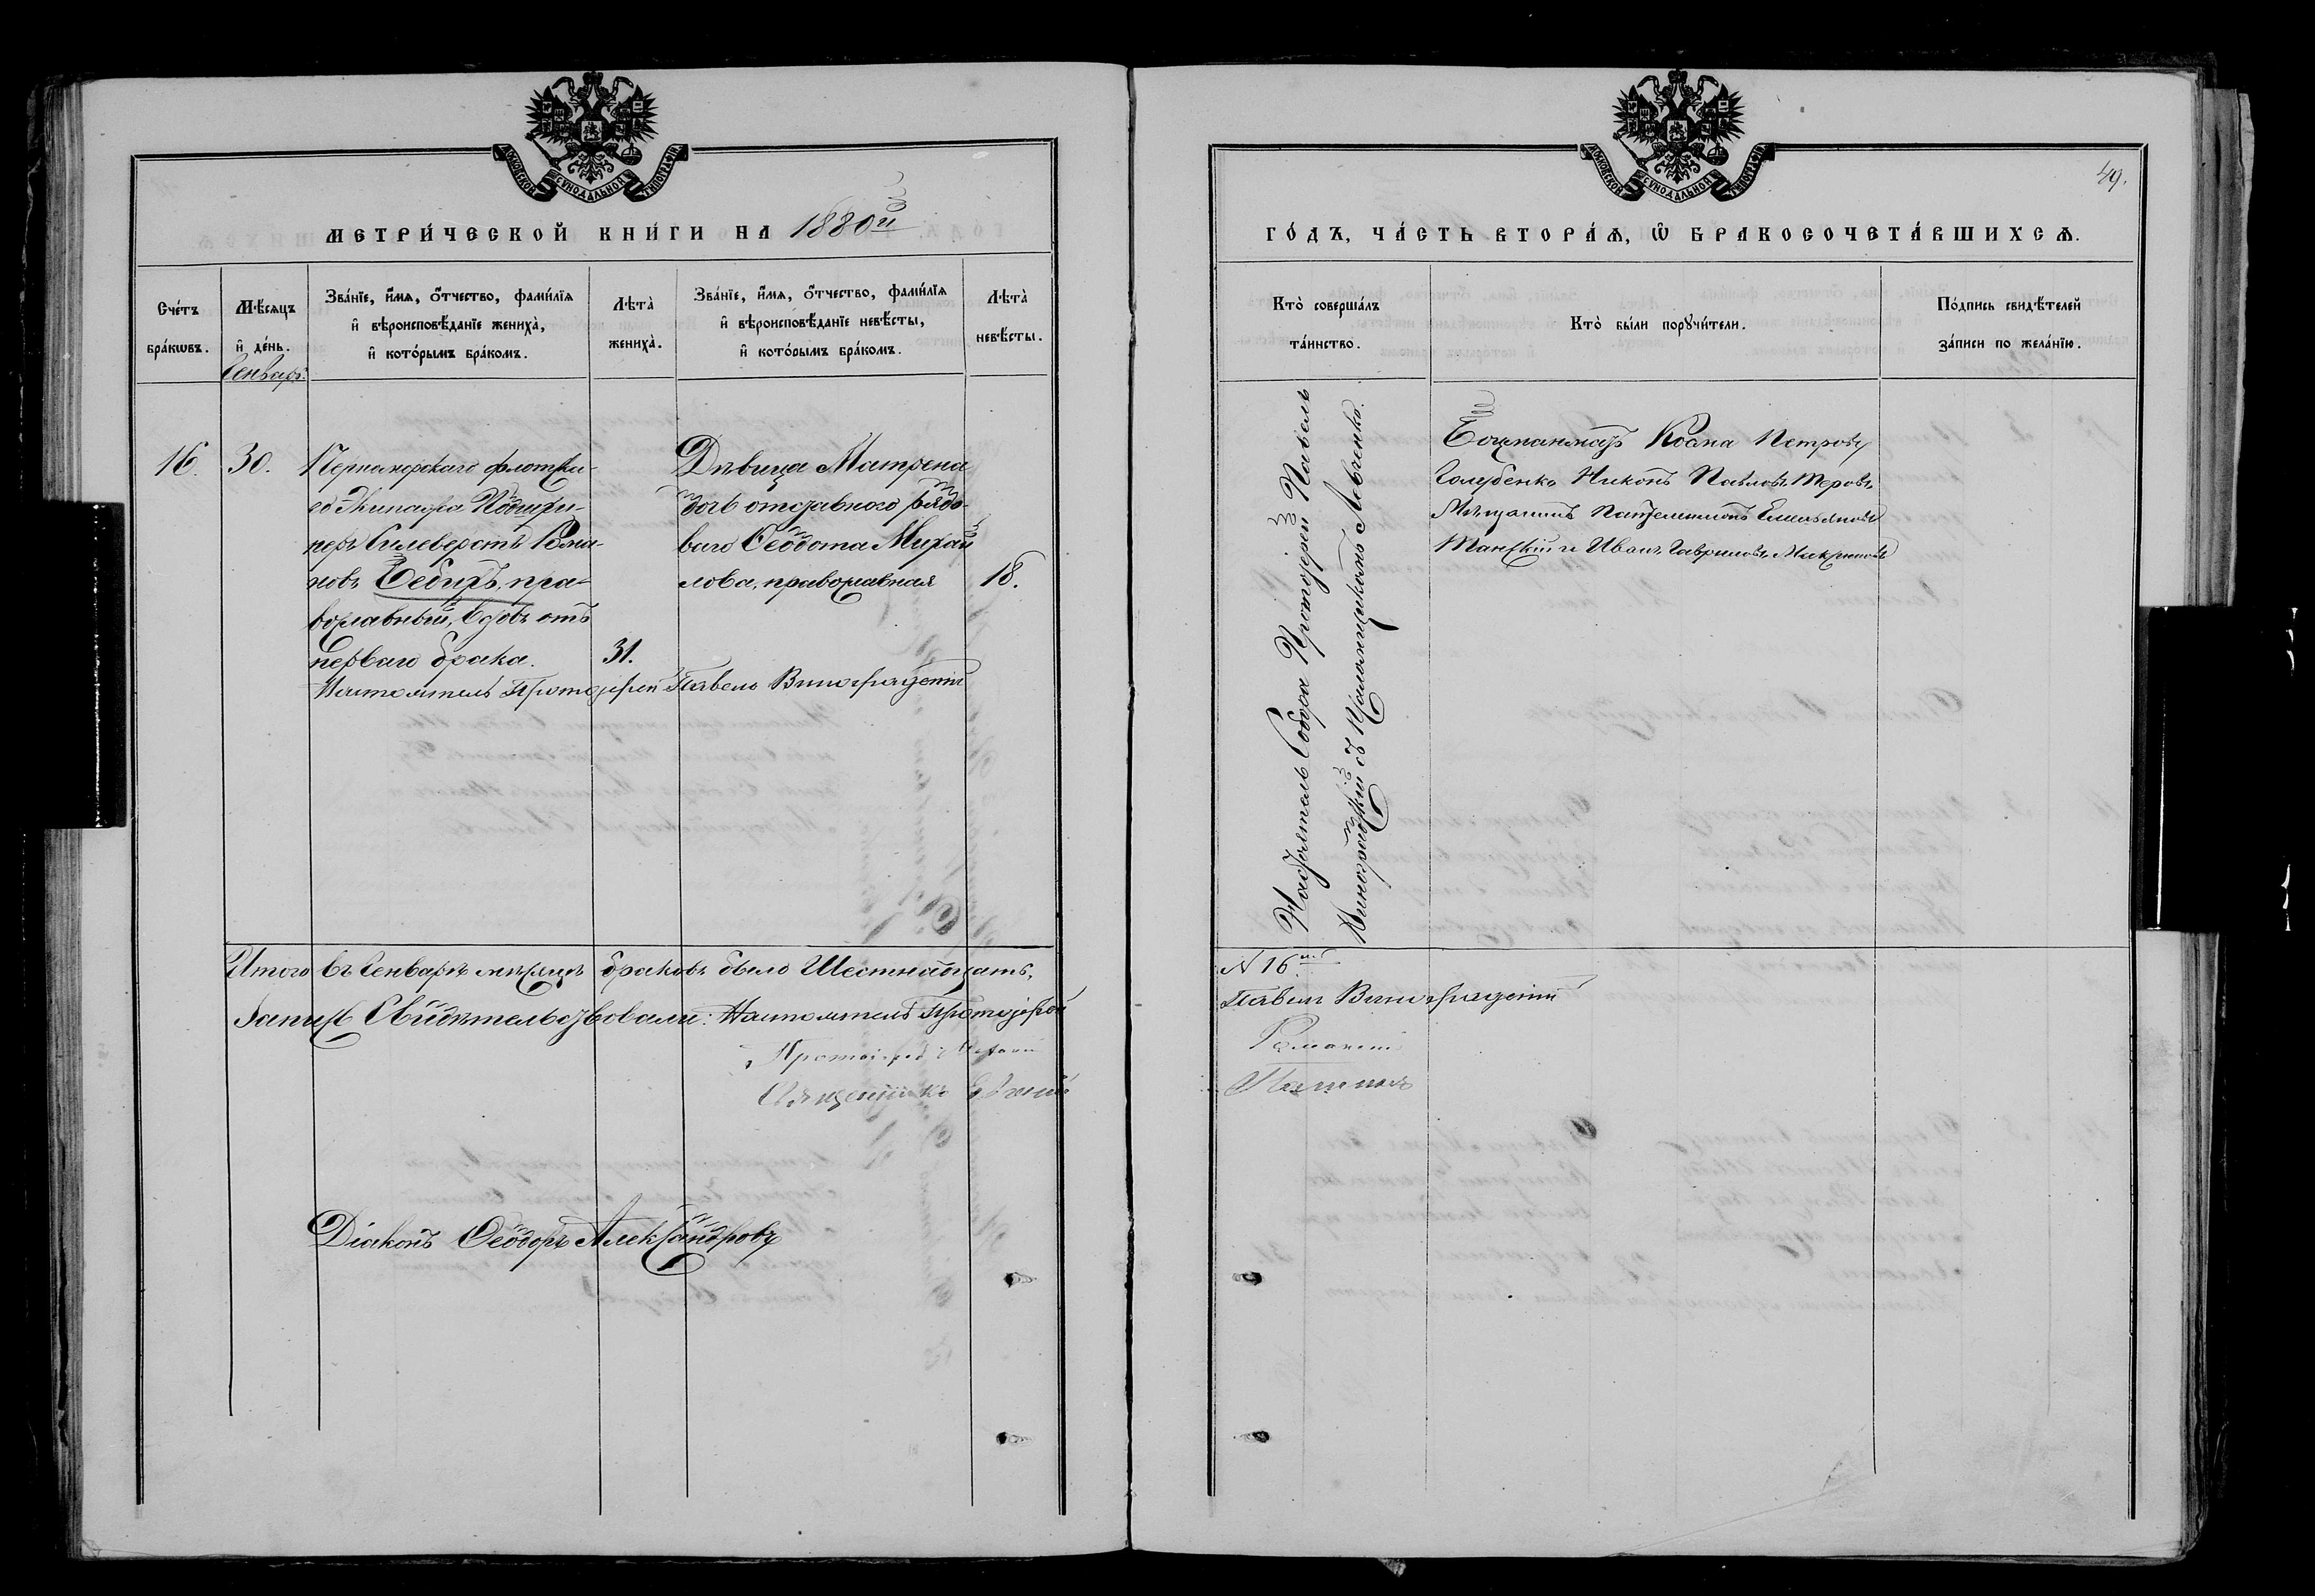 МОСКОВСКОЙ СѴНОДАЛЬНОЙ ТИПОГРАФІИ
МЕТРИ́ЧЕСКОЙ КНИ́ГИ НА 1880й
Сче́тъ бра́кѡвъ.
Мѣ́сѧцъ и҆ де́нь.
Зва́нїе, и҆́мѧ, ѻ҆́тчество, фами́лїѧ
и҆ вѣроисповѣ́данїе жениха̀,
и҆ кото́рымъ бра́комъ.
Лѣта̀ жениха̀.
Зва́нїе, и҆́мѧ, ѻ҆́тчество, фами́лїѧ
и҆ вѣроисповѣ́данїе невѣ́сты,
и҆ кото́рымъ бра́комъ.
Лѣта̀ невѣ́сты.
Генварь
16.
30.
Черноморскаго флотска-
го Экипажа
перъ Силеверстъ Рома-
новъ Бебихъ, пра-
вославный, вдовъ отъ
перваго брака.
31.
Дѣвица Матрена
дочь отставного рядо-
ваго Ѳеодота Михай
лова, православная
18.
Настоятель Протоіерей Павелъ Виноградскій
Итого въ Генварѣ мѣсяцѣ браковъ было Шестнадцать,
Запись Свидѣтельствовали: Настоятель Протоіерей
Протоіерей
Священникъ
Діаконъ Ѳеодоръ Александровъ
МОСКОВСКОЙ СѴНОДАЛЬНОЙ ТИПОГРАФІИ
49.
ГО́ДЪ, ЧА́СТЬ ВТОРА́Ѧ, Ѽ БРАКОСОЧЕТА́ВШИХСѦ.
Кто̀ соверша́лъ
та́инство.
Кто̀ бы́ли порꙋчи́тели.
По́дпись свидѣ́телей
за́писи по жела́нїю.
Настоятель Собора Протоіерей Павелъ
Виноградскій съ Псаломщикомъ Левченко.
Боцманматъ Козма Петровъ
Голубенко Никонъ Павловъ Теровъ
Мѣщанинъ Пантелеимонъ Емельяновъ
Танскій и Иванъ Гавриловъ
N 16.
Павелъ Виноградскій